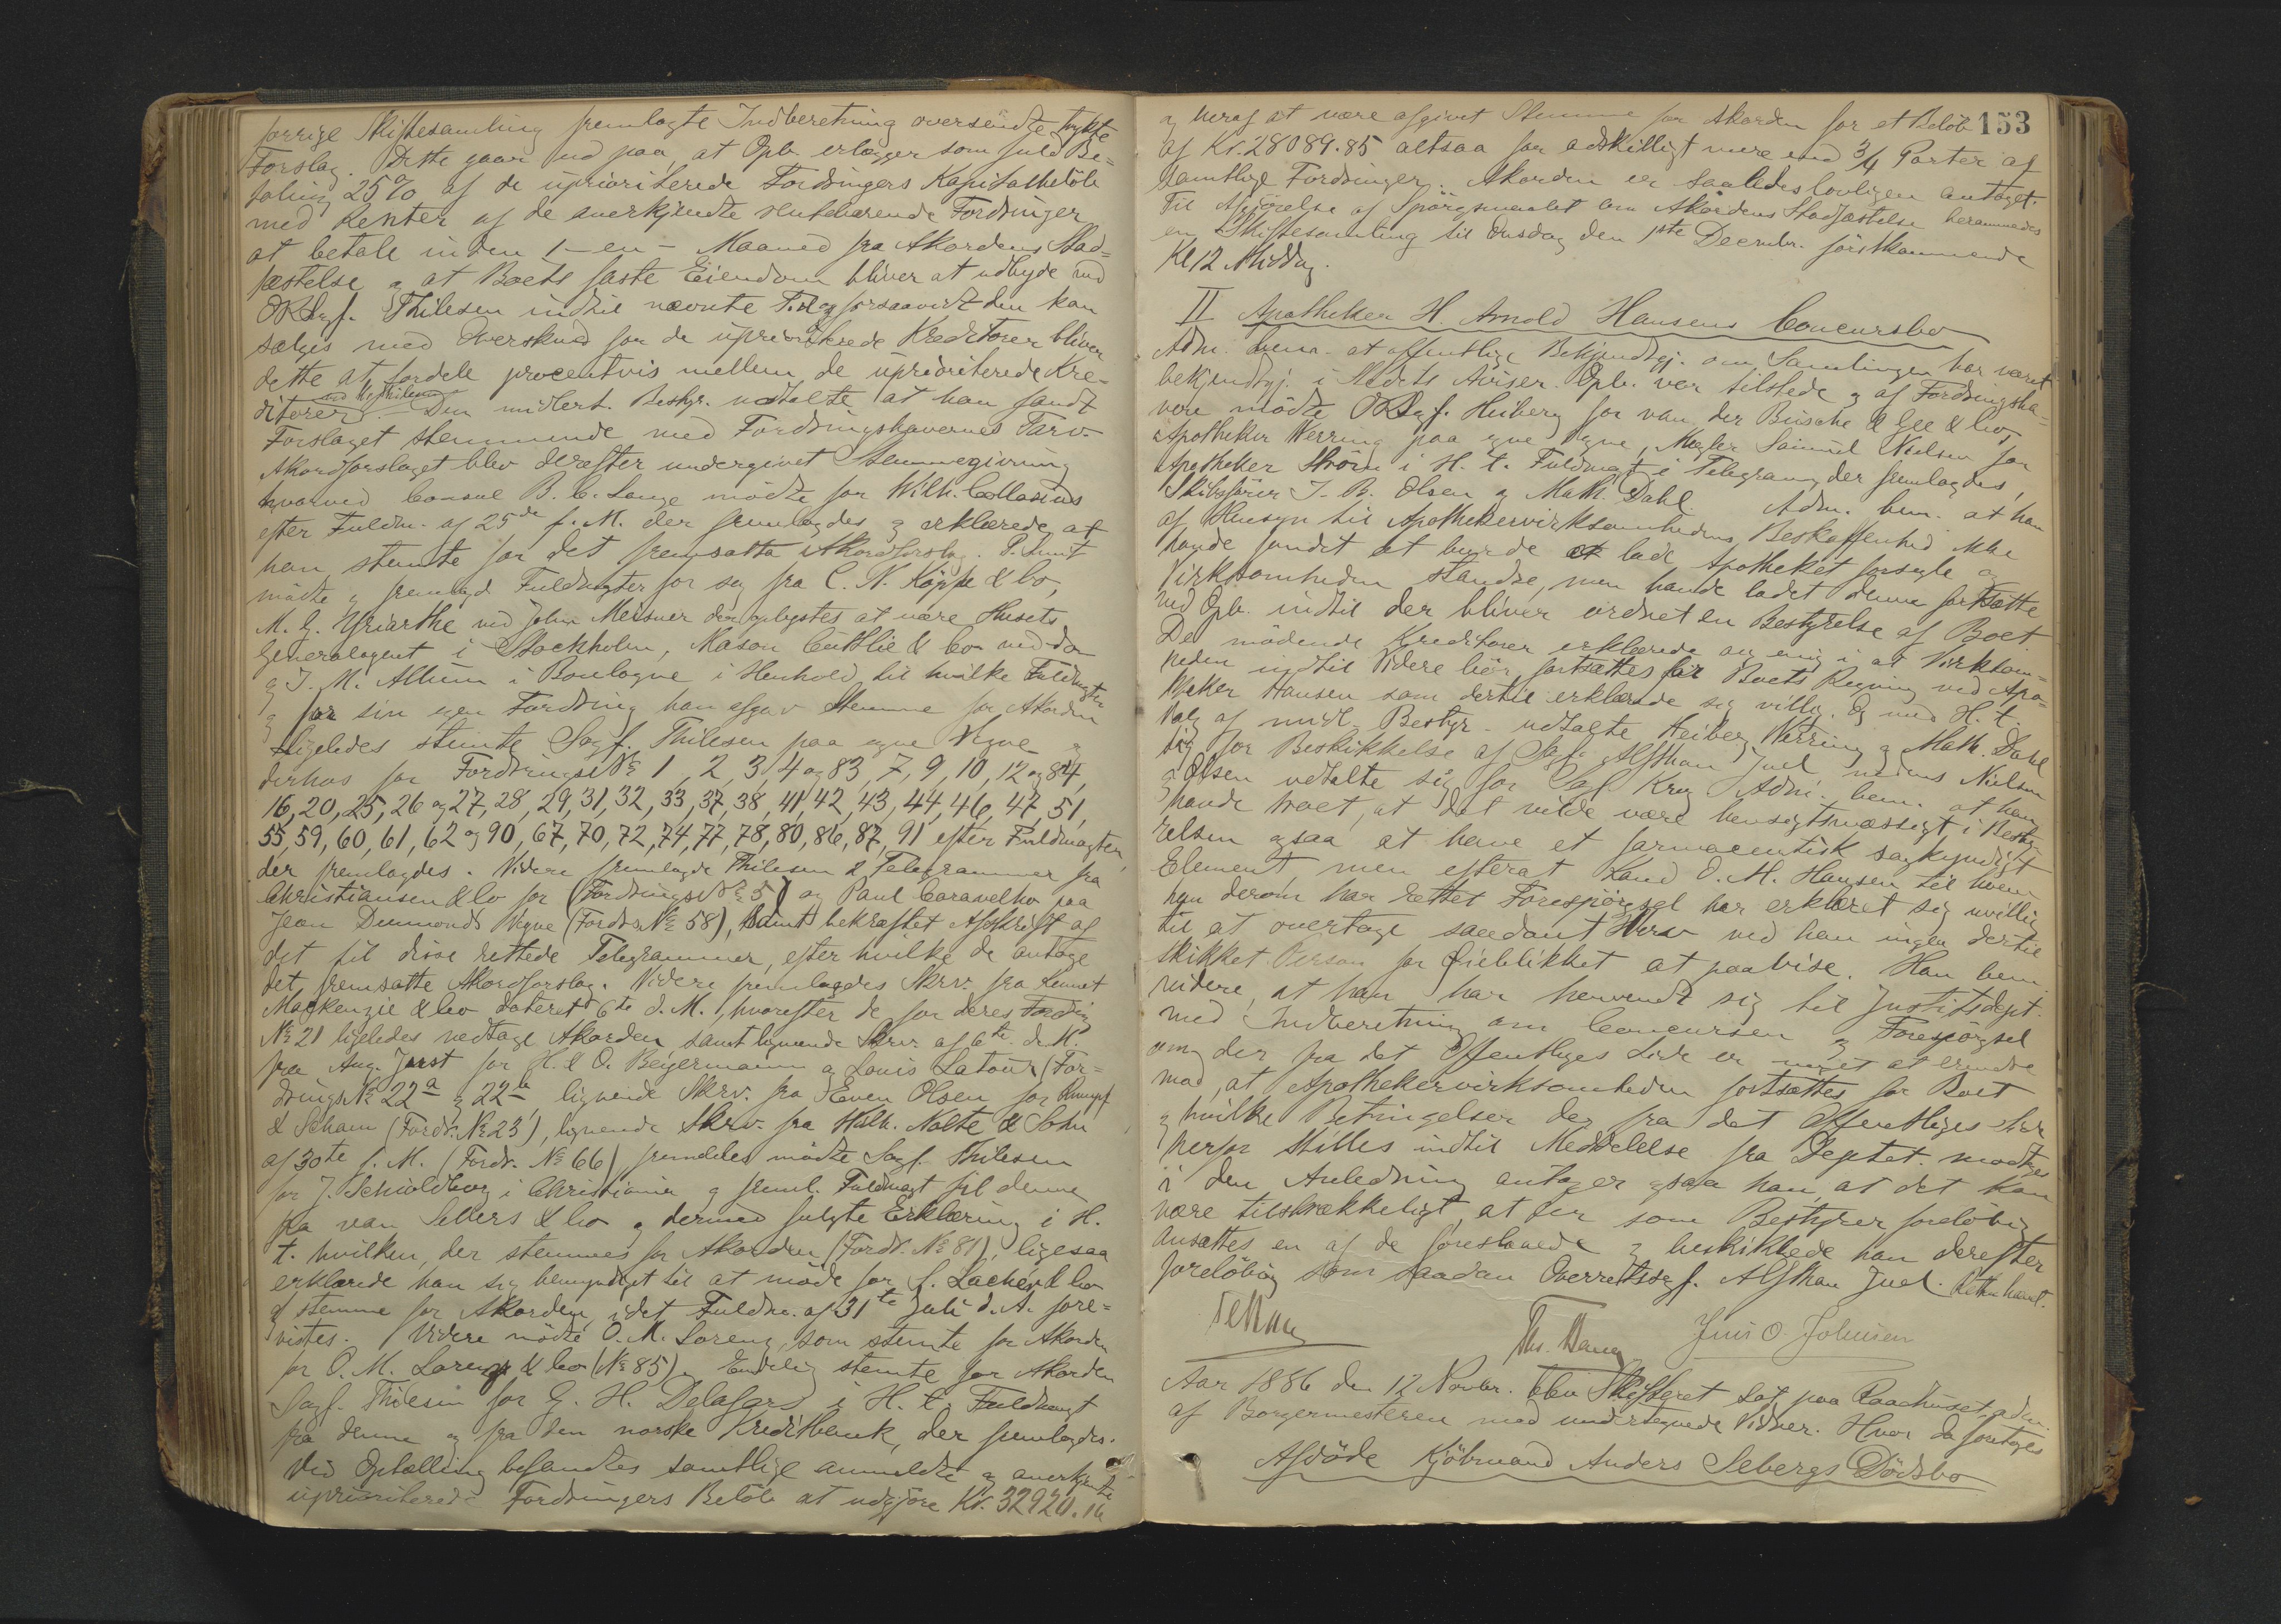 forrige Skiftesamling fremlagte Indberetning oversendte trykte
Forslag. Dette gaar ud paa at Opb. erlægger som fuld Be=
taling 25% af de uprioriterede Fordringers Kapitalbeløb
med Renter af de anerkjendte rentebærende Fordringer
at betale inden 1 - en - Maaned fra Akkordens Stad=
fæstelse og at Boets faste Eiendom bliver at udbyde ved
ORSagf. Thilesen indtil nævnte Tid og forsaavidt den kan
sælges med Overskud for de uprioriterede Kreditorer bliver
dette at fordele procentvis mellem de uprioriterede Kre=
ditorer ved Thilesen. Den midlert. Bestyr. udtalte at han fandt
Forslaget stemmende med Fordringshavernes Tarv.
Akordforslaget blev derefter undergivet Stemmegivning
hvorved Consul B. C. Lange mødte for Wilh. Collasius
efter Fuldm. af 25de f. M. der fremlagdes og erklærede, at
han stemte for det fremsatte Akordforslag. P. Lunt
mødte og fremlagd Fuldmagter for sig fra C. N. Køppe & Co,
M. G. Yriarthe ved John Messner der oplystes at være Husets
Generalagent i Stockholm, Mason Cuttlie & Co ved do
og J. M. Altum i Boulogne i Henhold til hvilke Fuldmagter
og for sin egen Fordring han afgav Stemme for Akorden
Ligeledes stemte Sagf. Thilesen paa egne Vegne og
derhos for Fordrings№ 1, 2, 3, 4 og 83, 7, 9, 10, 12 og 84,
16, 20, 25, 26 og 27, 28, 29, 31, 32, 33, 37, 38, 41, 42, 43, 44, 46, 47, 51,
55, 59, 60, 61, 62 og 90, 67, 70, 72, 74, 77, 78, 80, 86, 87, 91 efter Fuldmagter,
der fremlagdes. Videre fremlagde Thilesen 2 Telegrammer fra
Christiansen & Co for (Fordrings№ 5) og Paul Caravelho paa
Jean Dumonds Vegne (Fordr. № 58), samt bekræftet Afskrift af
det til disse rettede Telegrammer, efter hvilke de antage
det fremsatte Akordforslag. Videre fremlagdes Skriv. fra Kennet
Mackenzie & Co dateret 6te d. M., hvorefter de for deres Fording
№ 21 ligeledes vedtage Akorden samt lignende Skriv. af 6te d. M.
fra Aug. Jarst for H. & O. Beyermann og Louis Latour (For=
drings№ 22a og 22b lignende Skrv. fra Even Olsen for Rumpf
& Scham (Fordr. № 23), lignende Skrv. fra Wilh. Nolte & Sohn
af 30te f. M. (Fordr. № 66) fremdeles mødte Sagf. Thilesen
for J. Schioldborg i Christiania og freml. Fuldmagt til denne
fra van Sellers & Co og dermed fulgte Erklæring i H.
t. hvilken, der stemmes for Akorden (Fordr. № 81), ligesaa
erklærede han sig bemyndiget til at møde for S. Lacher & Co
og stemme for Akorden, idet Fuldm. af 31te Juli d. A. fore=
vistes. Videre mødte O. M. Lorenz, som stemte for Akorden
for O. M. Lorenz & Co (№ 85). Endelig stemte for Akorden
Sagf. Thilesen for G. H. Delafgars i H. t. Fuldmagt
fra denne og fra den norske Kreditbank, der fremlagdes.
Ved Optælling befandtes samtlige anmeldte og anerkjente
uprioriterede Fordringers Beløb at udgjøre Kr. 32920.16
153
og heraf at være afgivet Stemme for Akorden for et Beløb
af Kr. 28089.85 altsaa for adskilligt mere end 3/4 Parter af
samtlige Fordringer. Akorden er saaledes lovligen antaget.
Til Afgjørelse af Spørgsmaalet om Akordens Stadfæstelse berammedes
en Skiftesamling til Onsdag den 1ste Decembr. førstkommende
Kl 12 Middag.
II Apotheker H. Arnold Hansens Concursbo
Adm. bem. at offentlige Bekjendtgj. om Samlingen har været
bekjendtgj. i Stedets Aviser. Opb. var tilstede og af Fordringsha=
vere mødte ORSagf. Heiberg for van der Busche & Gee & Co,
Apotheker Werring paa egne Vegne, Megler Samuel Nielsen for
Apotheker Strøm i H. t. Fuldmagt i Telegram, der fremlagdes,
Skibsfører J. B. Olsen og Math. Dahl. Adm. bem. at han
af Hensyn til Apothekervirksomhedens Beskaffenhed ikke
havde fundet at burde lade Apotheket forsegle og
Virksomheden standse, men havde ladet denne fortsætte
ved Opb. indtil der bliver ordnet en Bestyrelse af Boet.
De mødende Kreditorer erklærede sig enig i at Virksom=
heden indtil Videre bør fortsættes for Boets Regning ved Apo=
theker Hansen som dertil erklærede sig villig. Og med H. t.
Valg af midl. Bestyr. udtalte Heiberg Werring og Math. Dahl
sig for Beskikkelse af Sagf. Alfthan Juel, medens Nielsen
og Olsen udtalte sig for Sagf. Krog. Adm. bem. at han
havde troet, at det vilde være hensigtsmæssigt i Besty=
relsen ogsaa at have et farmaceutisk sagkyndigt
Element, men efterat Kand. O. M. Hansen til hvem
han derom har rettet Forespørgsel har erklæret sig uvillig
til at overtage saadant Hverv ved han ingen dertil
skikket Person for Øieblikket at paavise. Han bem.
videre, at han har henvendt sig til Justitsdept.
med Indberetning om Concursen og Forespørgsel
om der fra det Offentliges Side er noget at erindre
mod, at Apothekervirksomheden fortsættes for Boet
og hvilke Betingelser der fra det Offentliges Side
herfor stilles indtil Meddelelse fra Deptet. modtages
i den Anledning antager ogsaa han, at det kan
være tilstrækkeligt, at der som Bestyrer foreløbig
ansættes en af de foreslaaede og beskikkede han derefter
foreløbig som saadan Overretssagf. Alfthan Juel. Retten hævet.
Jens O. Johnsen
Aar 1886 den 12 Novbr. blev Skifteret sat paa Raadhuset adm.
af Borgermesteren med undertegnede Vidner. Hvor da foretoges
Afdøde Kjøbmand Anders Sebergs Dødsbo